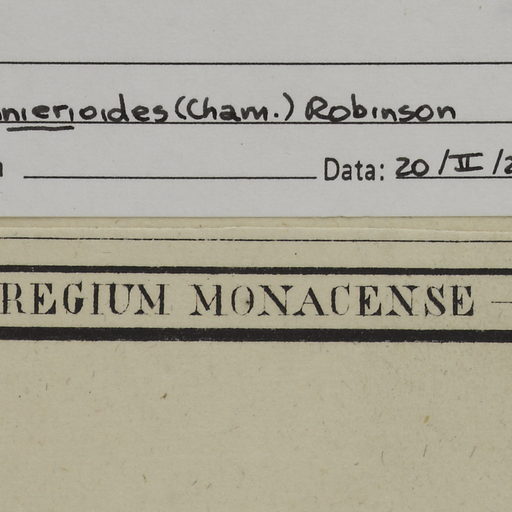 nierioides (Cham.) Robinson
Data: 20/II/2
REGIUM MONACENSE —